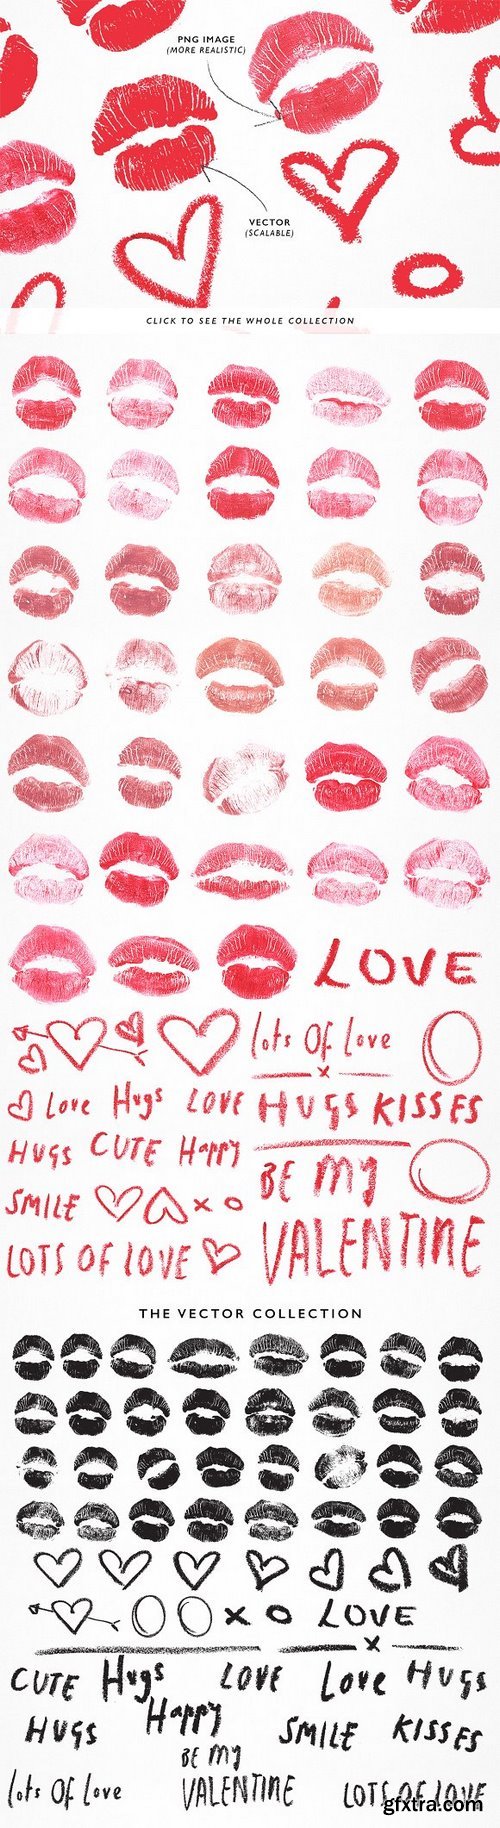 PNG IMAGE
(MORE REALISTIC)
VECTOR
(SCALABLE)
CLICK TO SEE THE WHOLE COLLECTION
LOVE
lots Of Love
Love Hugs LOVE HUGS KISSES
HUGS CUTE Happy
BE MY
SMILE x o
VALENTINE
LOTS OF LOVE
THE VECTOR COLLECTION
x o LOVE
x
CUTE Hugs LOVE Love HUGS
HUGS Happy SMILE KISSES
BE MY
lots Of Love VALENTINE LOTS OF LOVE
gfxtra.com